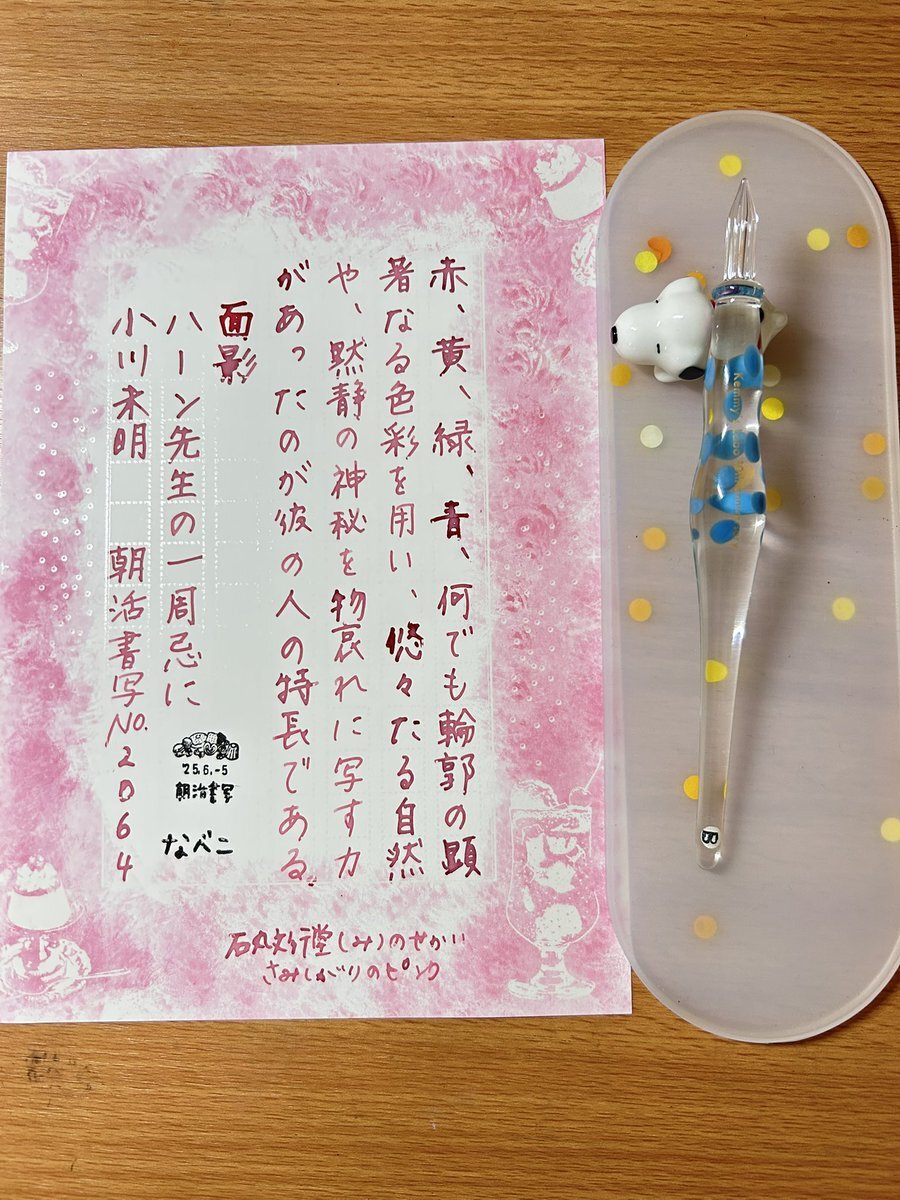 赤、黄、緑、青、何でも輪郭の顕
著なる色彩を用い、悠々たる自然
や、黙静の神秘を物哀れに写す力
があったのが彼の人の特長である。
面影
ハーン先生の一周忌に
小川未明 朝活書写No.2064
'25.6.-5
朝活書写
なべこ
石丸文行堂(み)のせかい
さみしがりのピンク
Kemmy
B